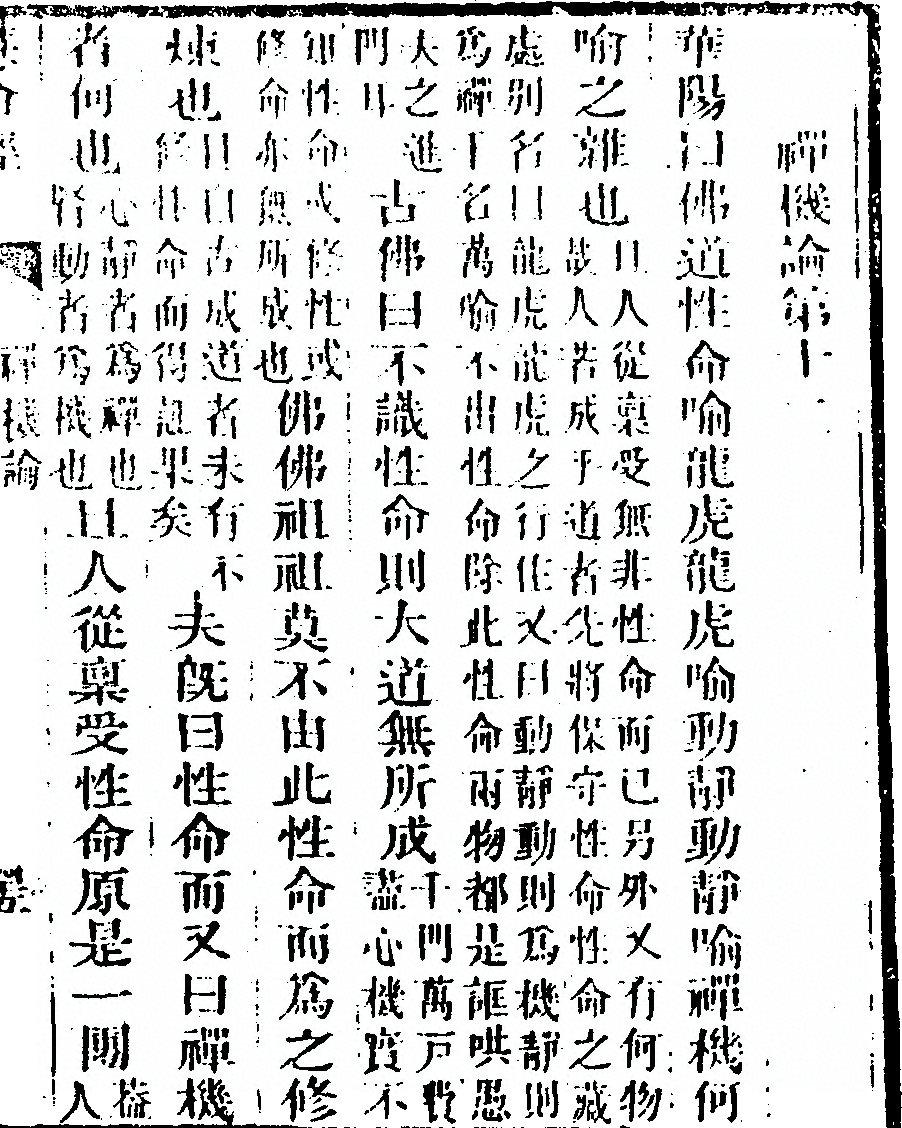 禪機論第十
華陽曰佛道性命喻龍虎龍虎喻動靜動靜喻禪機何
喻之雜也且人從稟受無非性命而已另外又有何物哉人若成乎道者先將保守性命性命之藏
處別名曰龍虎龍虎之行住又曰動靜動則爲機靜則爲禪千名萬喻不出性命除此性命兩物都是誆哄愚
夫之進門耳古佛曰不識性命則大道無所成千門萬戸費盡心機實不
知性命或修性或修命亦無所成也佛佛祖祖莫不由此性命而爲之修
煉也且自古成道者未有不經性命而得果矣夫旣曰性命而又曰禪機
者何也心靜者爲禪也腎動者爲機也且人從稟受性命原是一團蓋人
禪機論